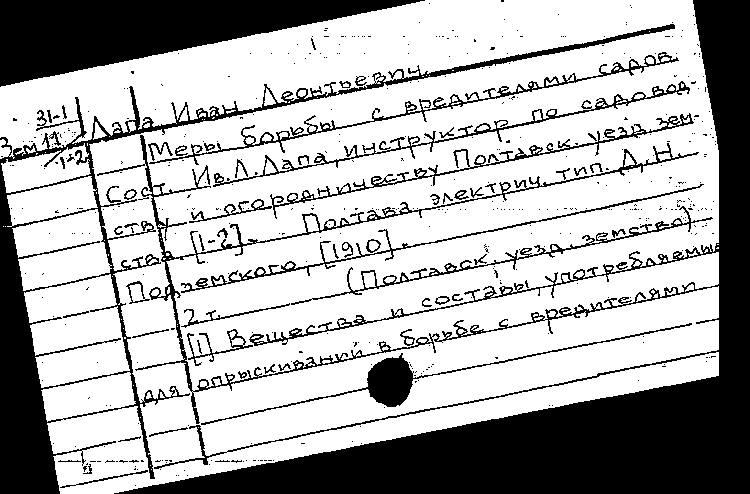 31-1
Зем 11
1-2
Лапа, Иван Леонтьевич.
Меры борьбы с вредителями садов.
Сост. Ив. Л. Лапа, инструктор по садовод-
ству и огородничеству Полтавск. уезд. зем-
ства. [1-2]. Полтава, электрич. тип. Д. Н.
Подземского, [1910].
2 т. (Полтавск. уезд. земство)
[1] Вещества и составы, употребляемые
для опрыскиваний в борьбе с вредителями